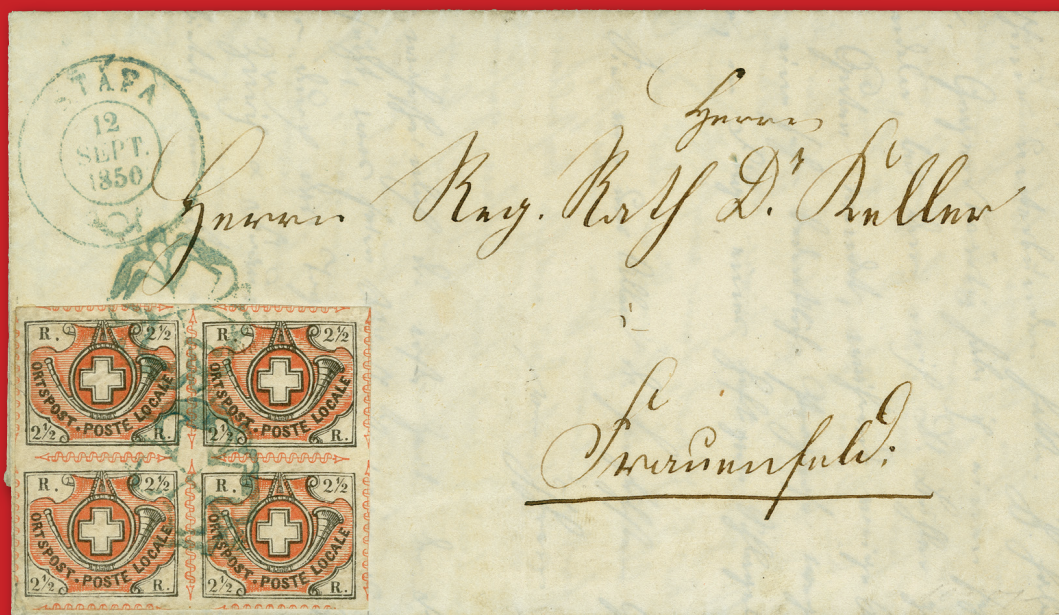 STÄFA
12
SEPT.
1850
Herrn
Herrn Reg. Rath Dr. Keller
in
Frauenfeld.
R. 2½
ORTSPOST · POSTE LOCALE
2½ R.
R. 2½
ORTSPOST · POSTE LOCALE
2½ R.
R. 2½
ORTSPOST · POSTE LOCALE
2½ R.
R. 2½
ORTSPOST · POSTE LOCALE
2½ R.